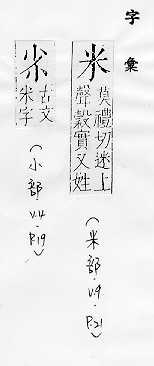 字彙
米
莫禮切迷上
聲穀實又姓
(米部.V.9.P.21)
古文
米字
(小部V.4.P.19)